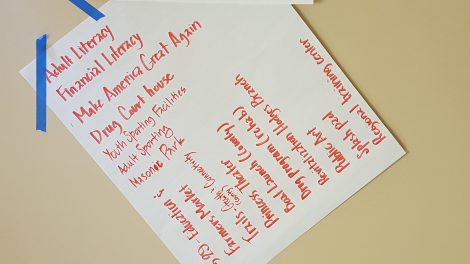 Adult Literacy
Financial Literacy
Make America Great Again
Drug Court house
Youth Sporting Facilities
Adult Sporting
Masonic Park
Farmers Market
Trails
Princess Theater
Boat Launch (County)
Drug program (rehab)
Revitalization Hodges Branch
Public Art
Splash Pad
Regional training center